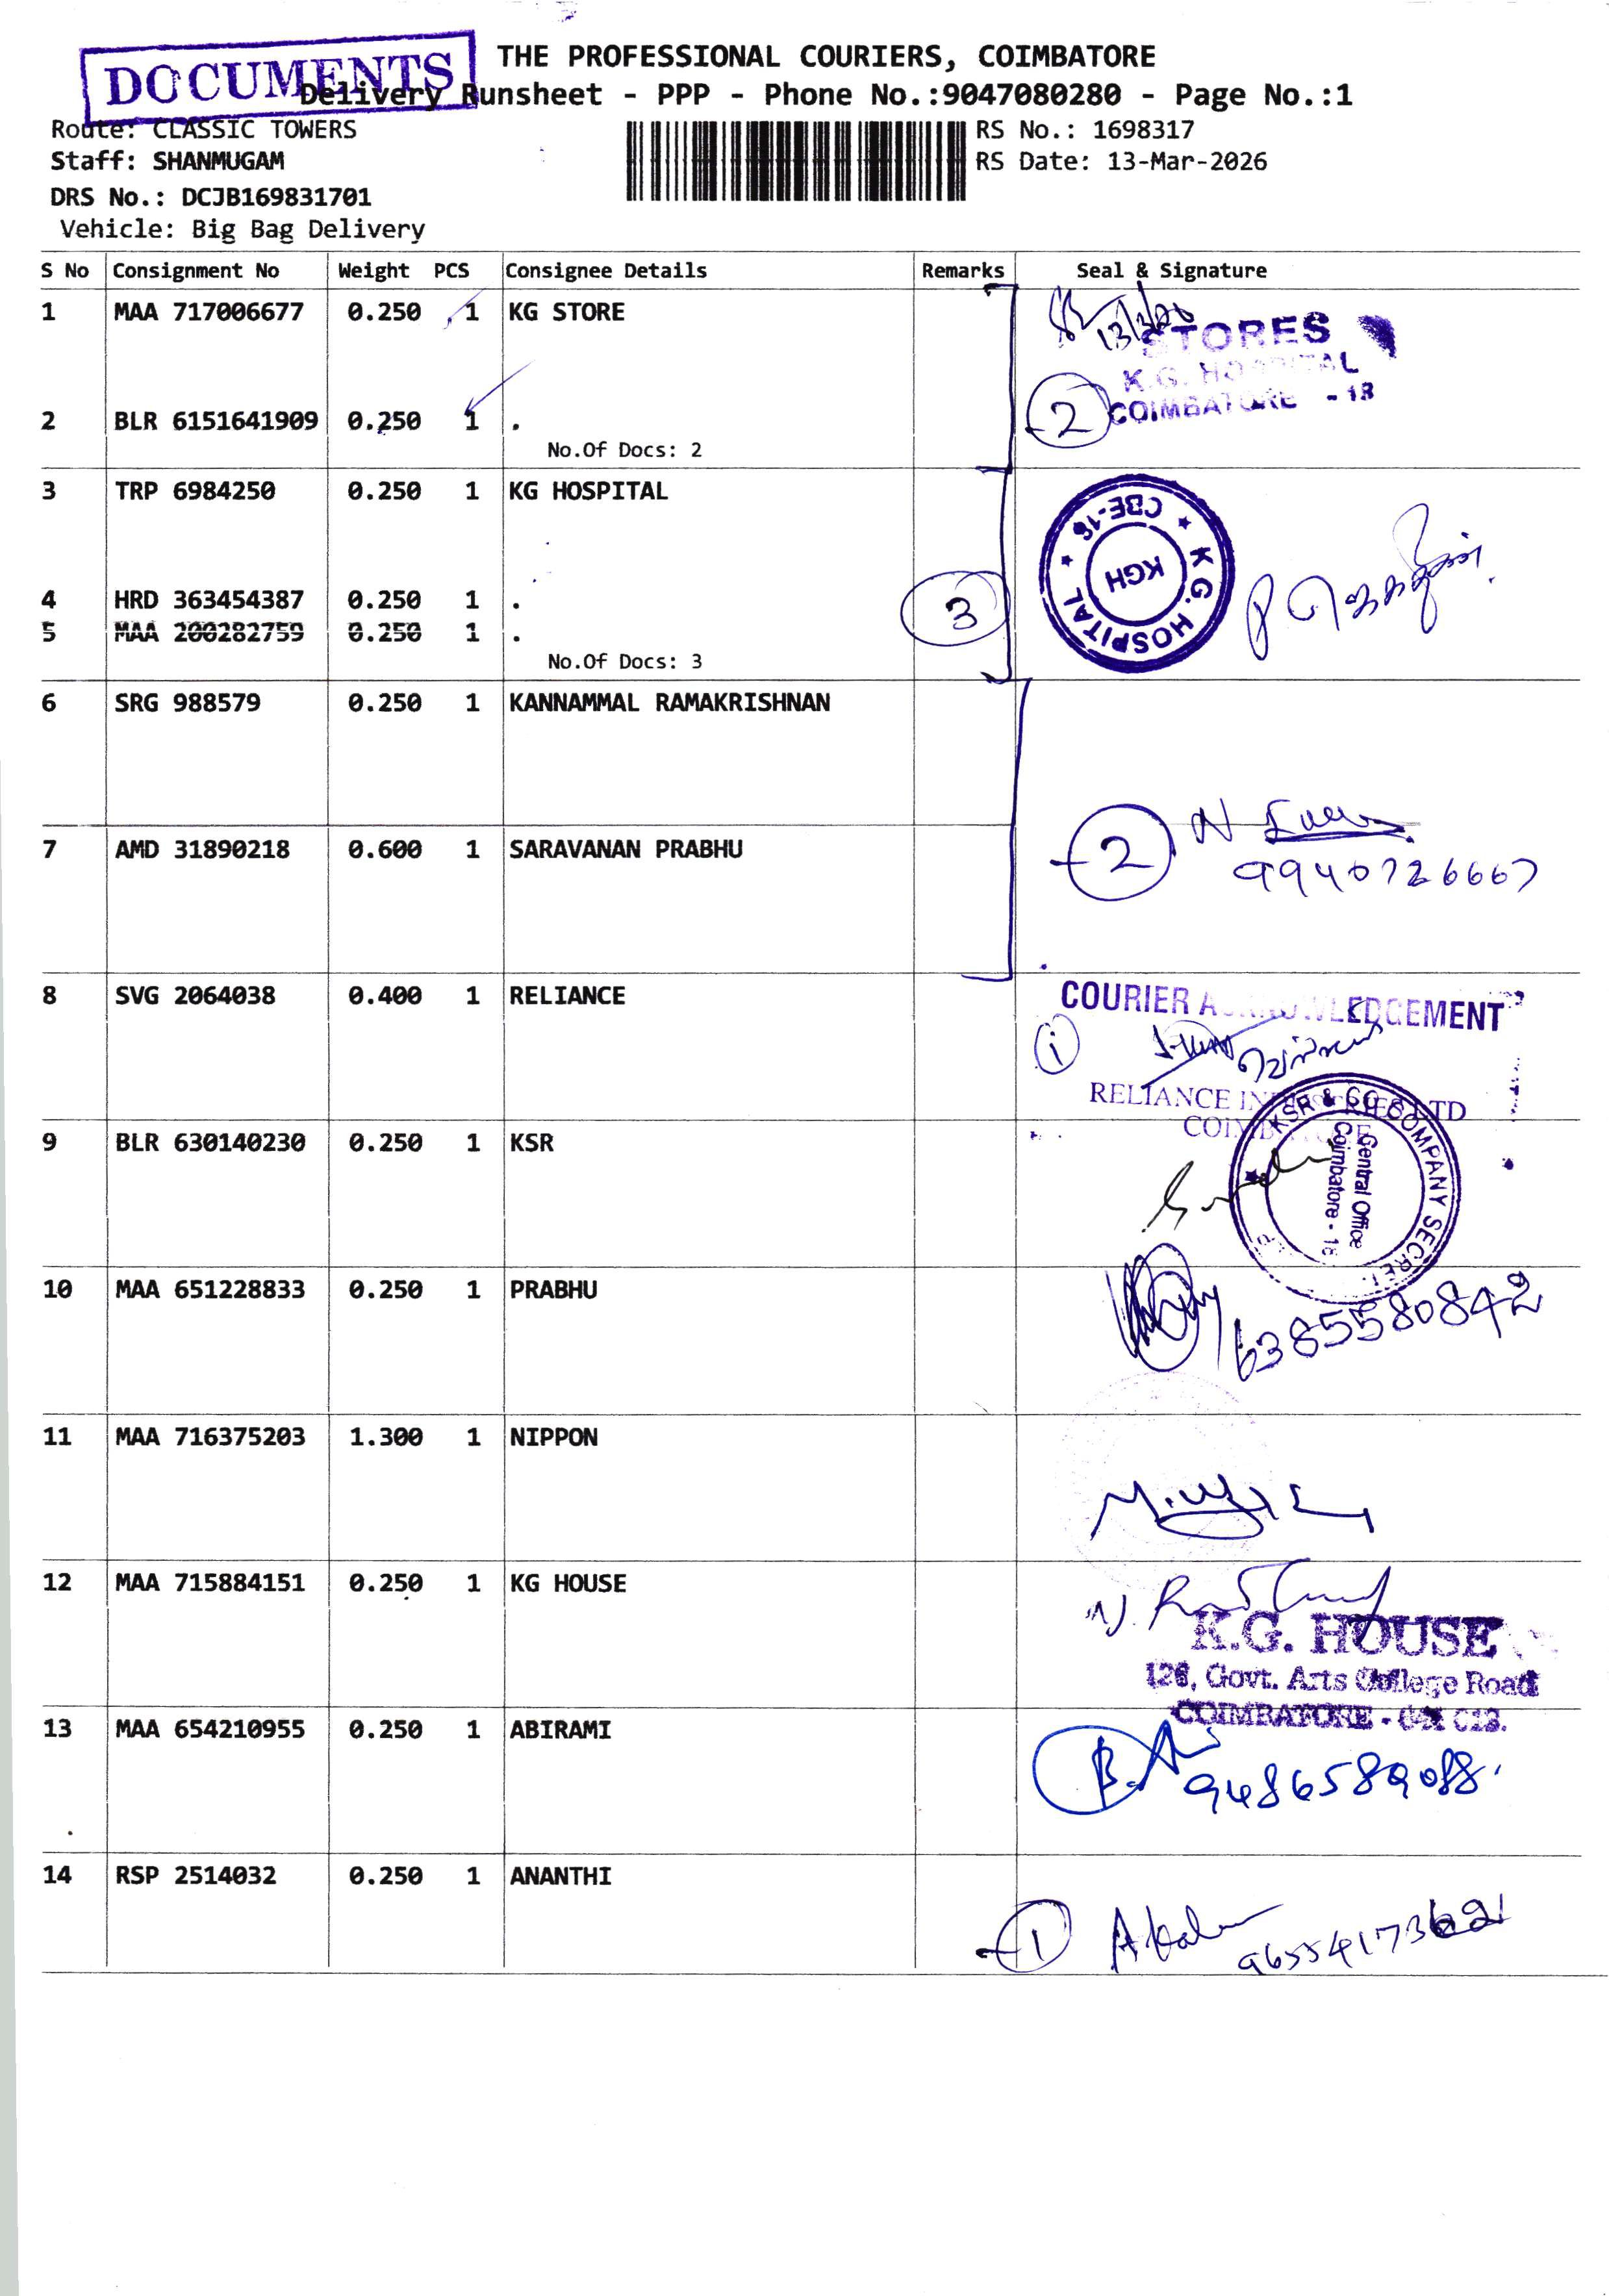 DOCUMENTS
THE PROFESSIONAL COURIERS, COIMBATORE
Delivery Runsheet - PPP - Phone No.:9047080280 - Page No.:1
Route: CLASSIC TOWERS
RS No.: 1698317
Staff: SHANMUGAM
RS Date: 13-Mar-2026
DRS No.: DCJB169831701
Vehicle: Big Bag Delivery
S No Consignment No Weight PCS Consignee Details Remarks Seal & Signature
1 MAA 717006677 0.250 1 KG STORE
STORES
K.G. HOSPITAL
COIMBATORE - 18
2
2 BLR 6151641909 0.250 1 .
No.Of Docs: 2
3 TRP 6984250 0.250 1 KG HOSPITAL
K.G. HOSPITAL
CBE-18
KGH
4 HRD 363454387 0.250 1 .
3
5 MAA 200282759 0.250 1 .
No.Of Docs: 3
6 SRG 988579 0.250 1 KANNAMMAL RAMAKRISHNAN
7 AMD 31890218 0.600 1 SARAVANAN PRABHU
2
9940726667
8 SVG 2064038 0.400 1 RELIANCE
COURIER ACKNOWLEDGEMENT
1
RELIANCE INDUSTRIES LTD
COIMBATORE
9 BLR 630140230 0.250 1 KSR
KSR & CO COMPANY SECRET
Central Office
Coimbatore - 18
10 MAA 651228833 0.250 1 PRABHU
6385580842
11 MAA 716375203 1.300 1 NIPPON
12 MAA 715884151 0.250 1 KG HOUSE
K.G. HOUSE
126, Govt. Arts College Road
COIMBATORE - 641 018.
13 MAA 654210955 0.250 1 ABIRAMI
9486589088
14 RSP 2514032 0.250 1 ANANTHI
1